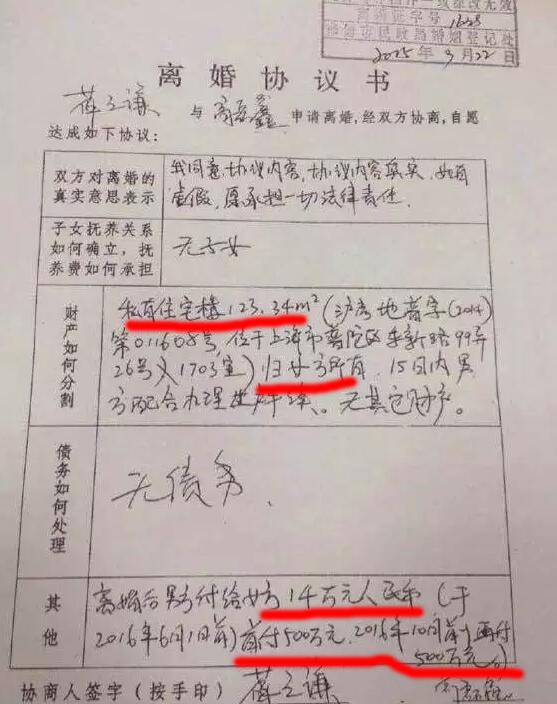 2015年9月22日
离婚协议书
薛之谦 与 高磊鑫 申请离婚,经双方协商,自愿
达成如下协议:
双方对离婚的
真实意思表示
我同意协议内容,协议内容真实,如有
虚假,愿承担一切法律责任.
子女抚养关系
如何确立,抚
养费如何承担
无子女
财产如何分割
私有住宅楼123.34m²(沪房地普字(2014)
第011608号,位于上海市普陀区 新路99弄
26号 1703室)归女方所有,15日内男
方配合办理 手续。无其它财产。
债务如何处理
无债务.
其他
离婚后男方付给女方1千万元人民币(于
2016年6月1日前)首付500万元,2016年10月前再付
500万元。)
协商人签字(按手印) 薛之谦 高磊鑫